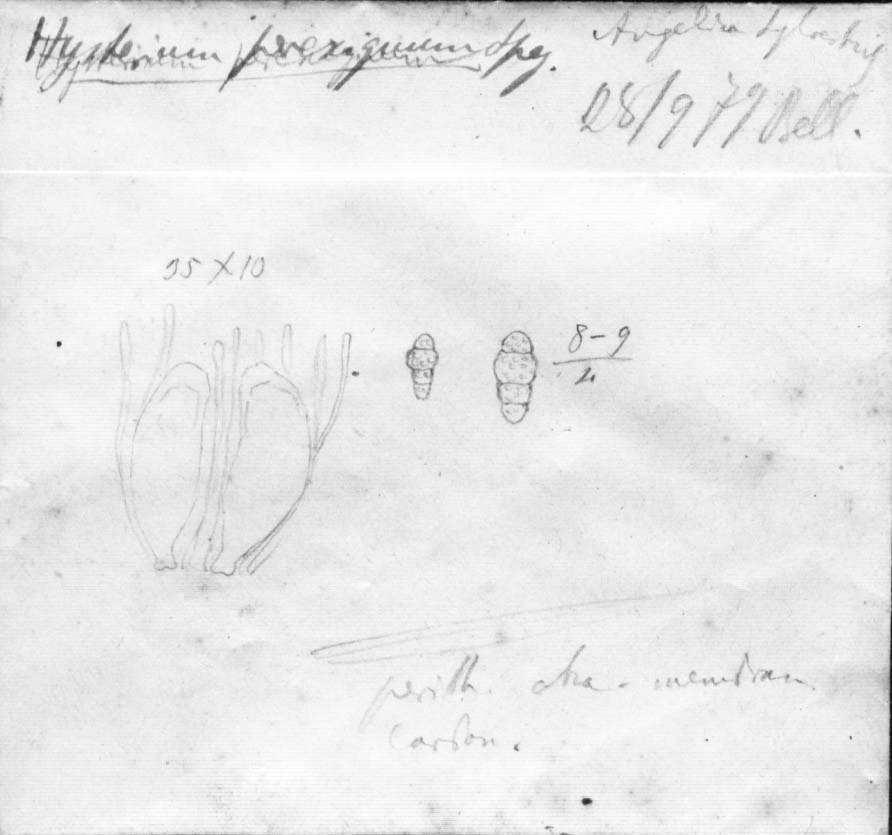 Hysterium perexiguum Speg.
Angelica sylvestris
28/9 79 Bell.
35 X 10
8-9
4
perith. atra-membran
Carbon.